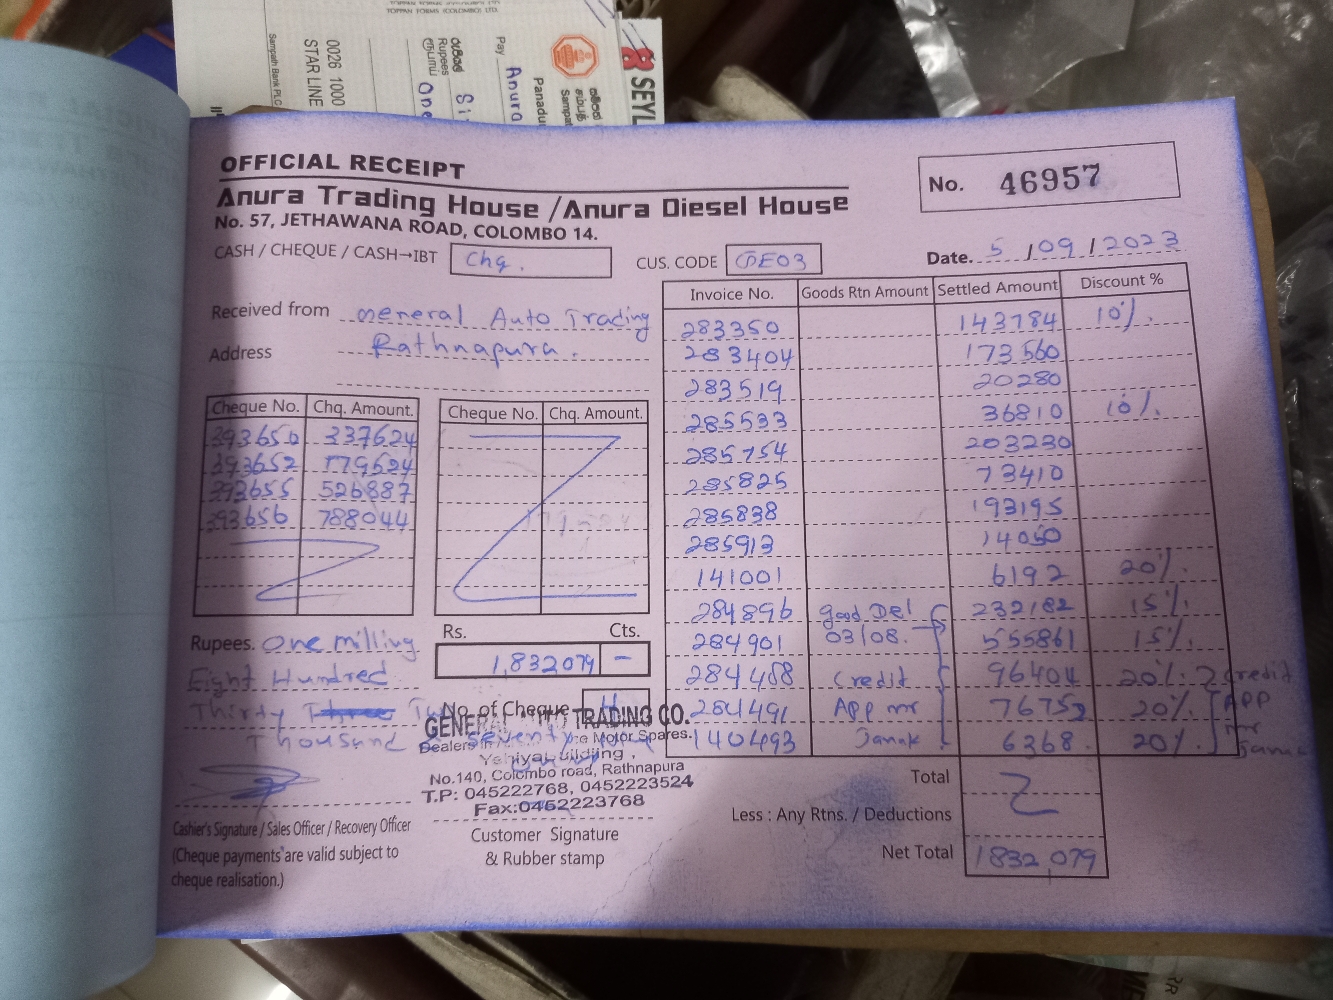 TOPPAN FORMS (COLOMBO) LTD.
Sampath Bank PLC
0026 1000
STAR LINE
Rupees
Pay Anura
One
Panadu
SEYL
OFFICIAL RECEIPT
No. 46957
Anura Trading House /Anura Diesel House
No. 57, JETHAWANA ROAD, COLOMBO 14.
CASH / CHEQUE / CASH→IBT Chq.
CUS. CODE GE03
Date. 5 /09 /2023
Received from General Auto Trading
Address Rathnapura.
Invoice No. Goods Rtn Amount Settled Amount Discount %
283350 143784 10%.
283404 173560
283519 20280
285533 36810 10%.
285754 203230
285825 73410
285838 193195
285913 14050
141001 6192 20%.
284896 good Del 232182 15%.
284901 03/08. 555861 15%.
284488 Credit 96404 20%. Credit
284491 App mr 76752 20%. APP
140493 Janak 6368 20%. mr
Janak
Cheque No. Chq. Amount.
393650 337624
393652 179524
393655 526887
393656 788044
Cheque No. Chq. Amount.
Rupees. One milling
Eight Hundred
Thirty Three Two
Thousand & Seventy
Rs. Cts.
1,832079 –
No. of Cheque 4
GENERAL AUTO TRADING CO.
Dealers in Motor Spares.
Yahiya Building,
No.140, Colombo road, Rathnapura
T.P: 045222768, 0452223524
Fax:0452223768
Cashier's Signature / Sales Officer / Recovery Officer
(Cheque payments are valid subject to
cheque realisation.)
Customer Signature
& Rubber stamp
Total
Less : Any Rtns. / Deductions
Net Total 1832,079